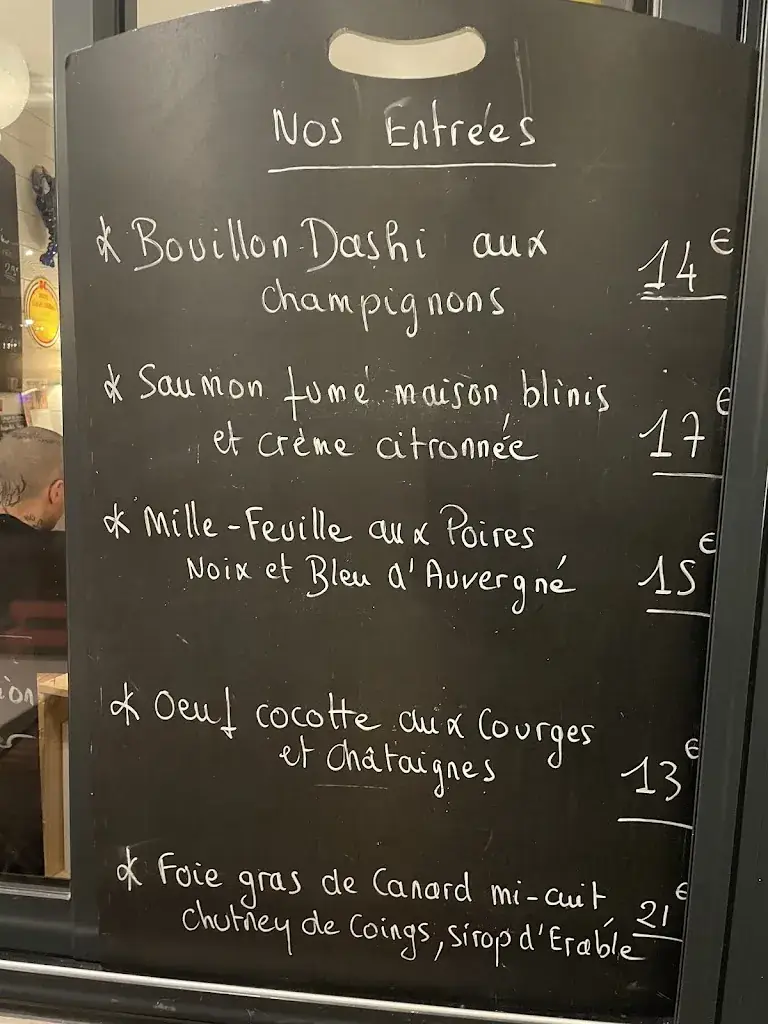 Nos Entrées
* Bouillon Dashi aux
champignons
14€
* Saumon fumé maison, blinis
et crème citronnée
17€
* Mille-Feuille aux Poires
Noix et Bleu d'Auvergné
15€
* Oeuf cocotte aux Courges
et Châtaignes
13€
* Foie gras de Canard mi-cuit,
chutney de Coings, sirop d'Erable
21€